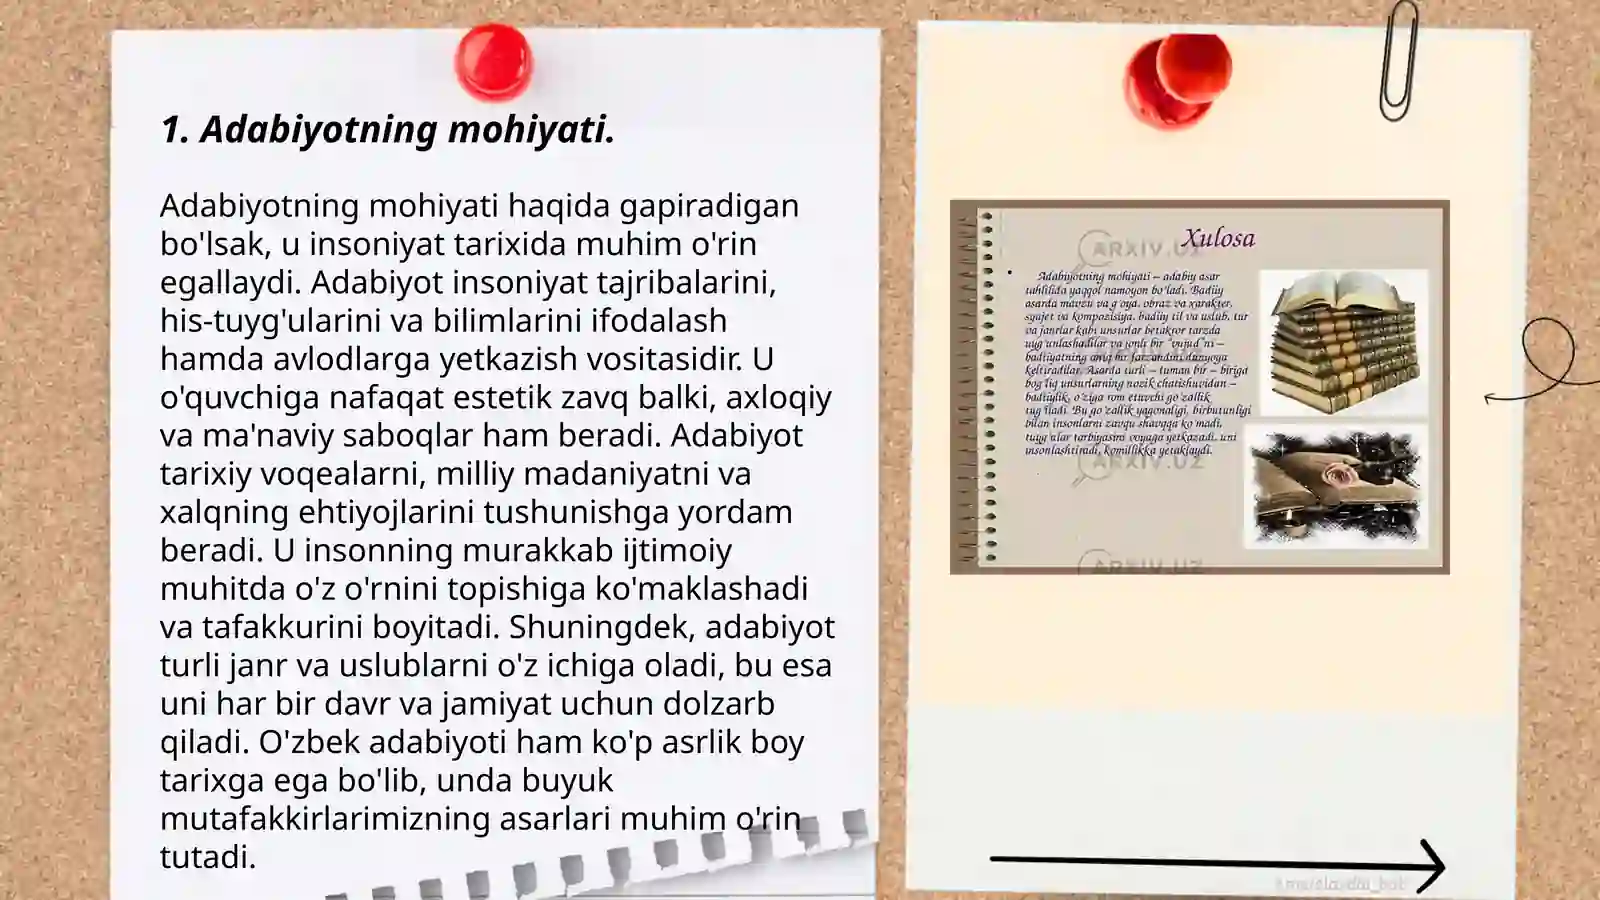 1. Adabiyotning mohiyati.
Adabiyotning mohiyati haqida gapiradigan
bo'lsak, u insoniyat tarixida muhim o'rin
egallaydi. Adabiyot insoniyat tajribalarini,
his-tuyg'ularini va bilimlarini ifodalash
hamda avlodlarga yetkazish vositasidir. U
o'quvchiga nafaqat estetik zavq balki, axloqiy
va ma'naviy saboqlar ham beradi. Adabiyot
tarixiy voqealarni, milliy madaniyatni va
xalqning ehtiyojlarini tushunishga yordam
beradi. U insonning murakkab ijtimoiy
muhitda o'z o'rnini topishiga ko'maklashadi
va tafakkurini boyitadi. Shuningdek, adabiyot
turli janr va uslublarni o'z ichiga oladi, bu esa
uni har bir davr va jamiyat uchun dolzarb
qiladi. O'zbek adabiyoti ham ko'p asrlik boy
tarixga ega bo'lib, unda buyuk
mutafakkirlarimizning asarlari muhim o'rin
tutadi.
Xulosa
Adabiyotning mohiyati – adabiy asar
tahlilida yaqqol namoyon bo'ladi. Badiiy
asarda mavzu va g'oya, obraz va xarakter,
syujet va kompozisiya, badiiy til va uslub, tur
va janrlar kabi unsurlar betakror tarzda
uyg'unlashadilar va jonli bir "vujud"ni –
badiiyatning aniq bir farzandini dunyoga
keltiradilar. Asarda turli – tuman bir – biriga
bog'liq unsurlarning nozik chatishuvidan –
badiiylik, o'ziga rom etuvchi go'zallik
tug'iladi. Bu go'zallik yagonaligi, birbutunligi
bilan insonlarni zavqu shavqqa ko'madi,
tuyg'ular tarbiyasini voyaga yetkazadi, uni
insonlashtiradi, komillikka yetaklaydi.
ARXIV.UZ
ARXIV.UZ
ARXIV.UZ